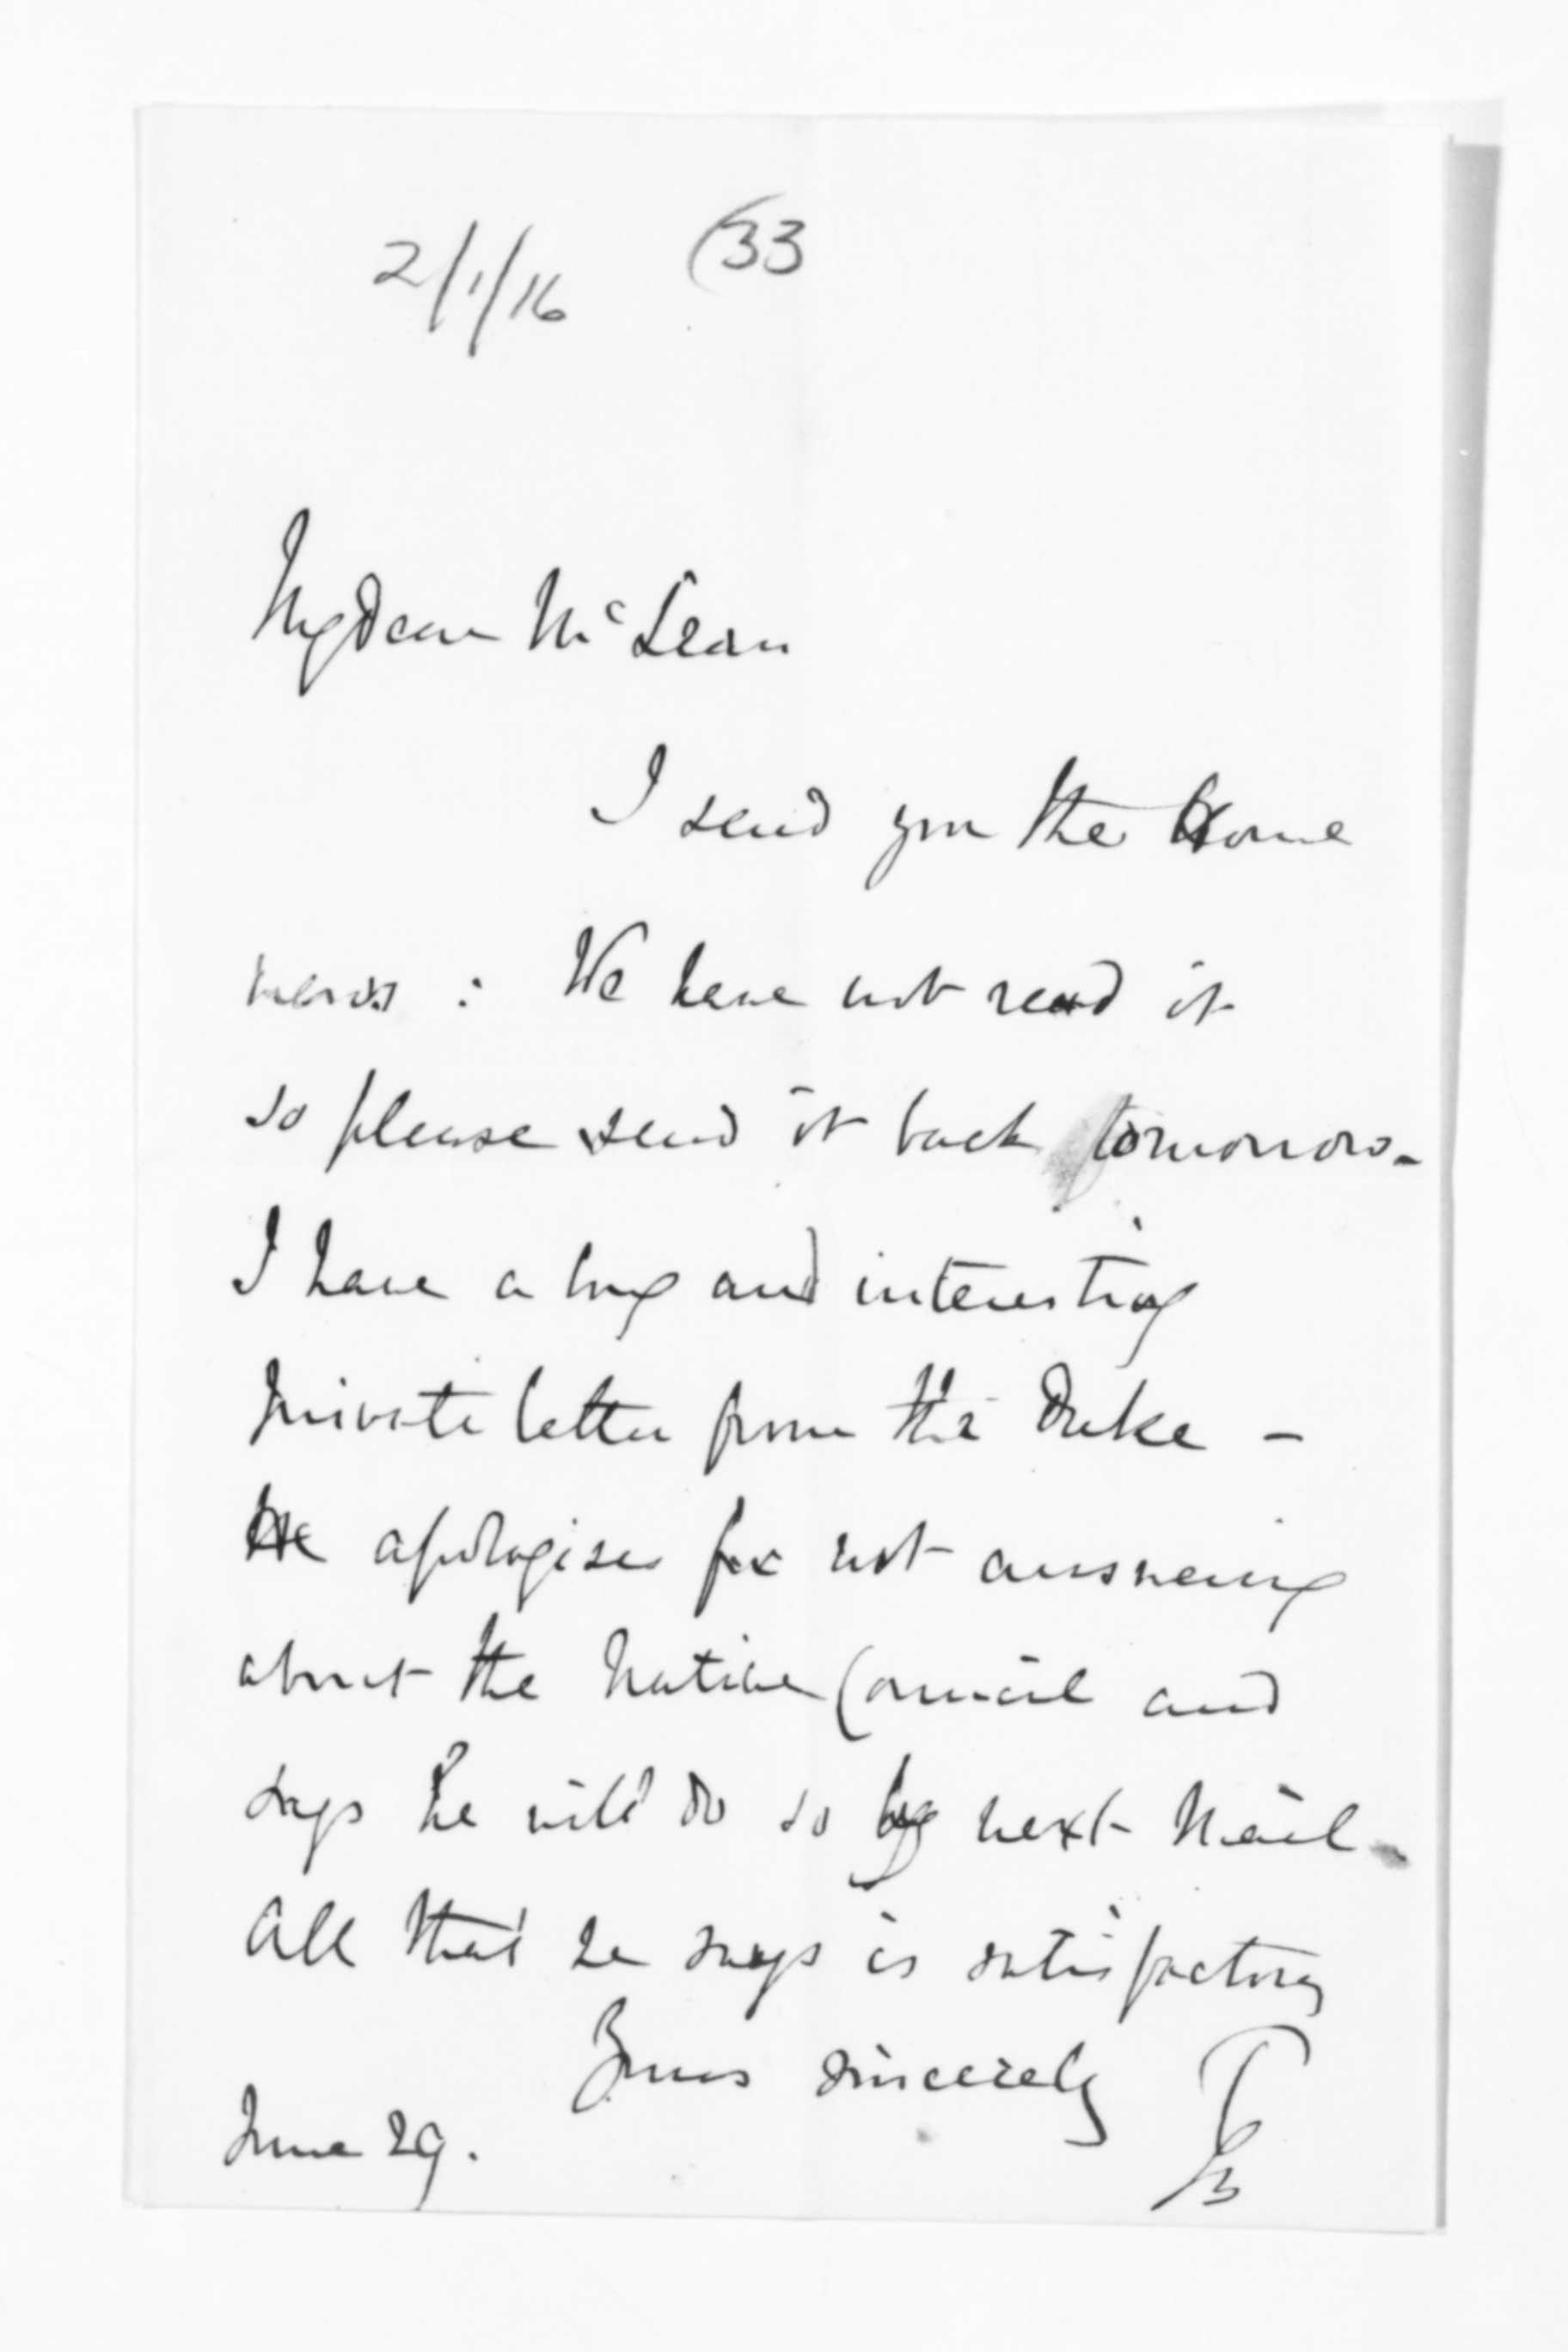 2/1/16 (33
My Dear McLean
I send you the Home
news : We have not read it
so please send it back tomorrow -
I have a long and interesting
private letter from the Duke -
He apologises for not answering
about the Native Council and
says he will do so by next Mail -
All that he says is satisfactory
Yours sincerely
June 29.